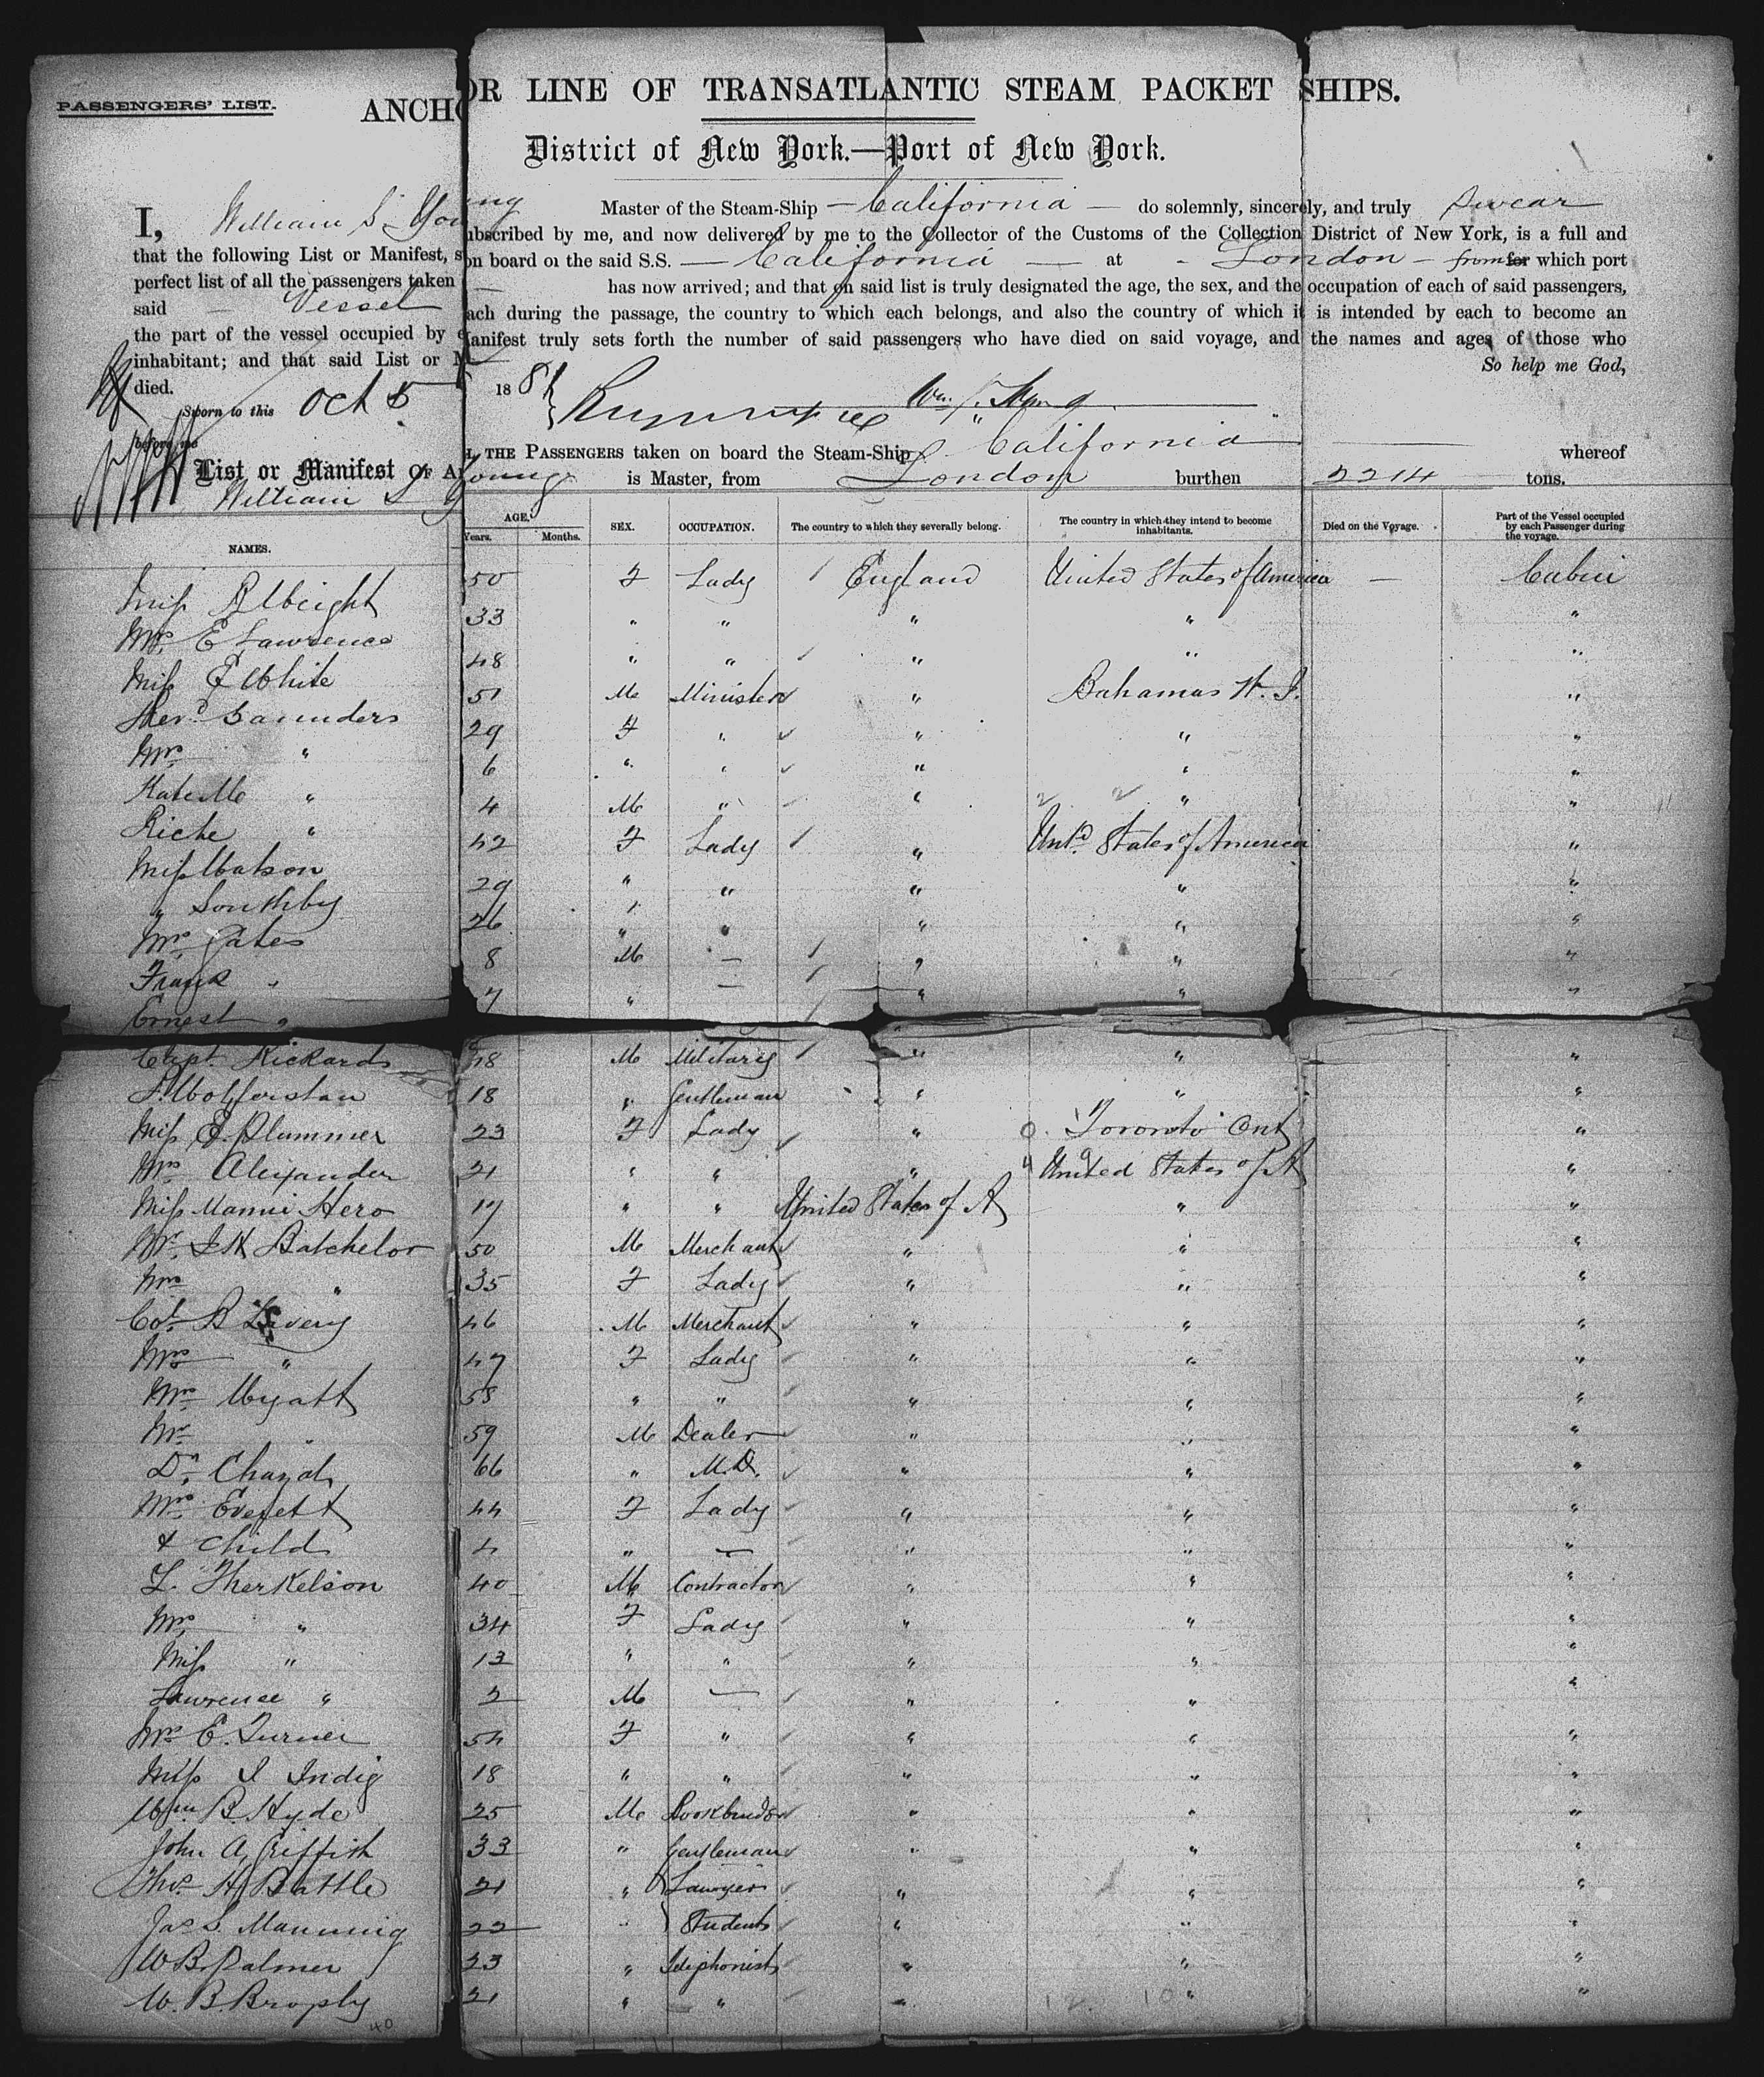 PASSENGERS' LIST.
ANCHOR LINE OF TRANSATLANTIC STEAM PACKET SHIPS.
District of New York.—Port of New York.
I, William S. Young Master of the Steam-Ship — California — do solemnly, sincerely, and truly swear
that the following List or Manifest, subscribed by me, and now delivered by me to the Collector of the Customs of the Collection District of New York, is a full and
perfect list of all the passengers taken on board of the said S.S. — California — at - London - from for which port
said — Vessel — has now arrived; and that on said list is truly designated the age, the sex, and the occupation of each of said passengers,
the part of the vessel occupied by each during the passage, the country to which each belongs, and also the country of which it is intended by each to become an
inhabitant; and that said List or Manifest truly sets forth the number of said passengers who have died on said voyage, and the names and ages of those who
died. So help me God,
Sworn to this Oct 5 1881
before me
List or Manifest OF ALL THE PASSENGERS taken on board the Steam-Ship California whereof
William S Young is Master, from London burthen 2214 tons.
NAMES. AGE. Years. Months. SEX. OCCUPATION. The country to which they severally belong. The country in which they intend to become inhabitants. Died on the Voyage. Part of the Vessel occupied by each Passenger during the voyage.
Miss Albright 50 F Lady England United States of America — Cabin
Mrs. E Lawrence 33 " " " " "
Miss E White 48 " " " " "
Revd. Saunders 51 M Minister " Bahamas W. I. "
Mrs " 29 F " " " "
Kate M " 6 " " " " "
Riche " 4 M " " " "
Miss Watson 42 F Lady " Unt.d States of America "
" Southby 29 " " " " "
Mrs Yates 26 " " " " "
Frank " 8 M — " " "
Ernest " 7 " — " " "
Capt. Rickards 48 M Military " " "
F. Wolferstan 18 " Gentleman " " "
Miss E. Plummer 23 F Lady " Toronto Ont "
Mrs Alexander 21 " " " United States of A "
Miss Mamie Hero 17 " " United States of A " "
Mr. J H Batchelor 50 M Merchant " " "
Mrs " 35 F Lady " " "
Col. B Livery 46 M Merchant " " "
Mrs " 47 F Lady " " "
Mrs Wyatt 58 " " " " "
Mr. " 59 M Dealer " " "
Dr. 66 " M.D. " " "
Mrs Everett 44 F Lady " " "
& Child 4 " — " " "
L. Therkelson 40 M Contractor " " "
Mrs " 34 F Lady " " "
Miss " 13 " " " " "
Lawrence " 2 M — " " "
Mrs E. Turner 54 F " " " "
Miss I Indig 18 " " " " "
Wm. B. Hyde 25 M Bookbinder " " "
John A. Griffith 33 " Gentleman " " "
Thos. H. Battle 21 " Lawyer " " "
Jas S. Manning 22 " Students " " "
W B. Palmer 23 " Telephonists " " "
W. B. Brophy 21 " " " " "
40